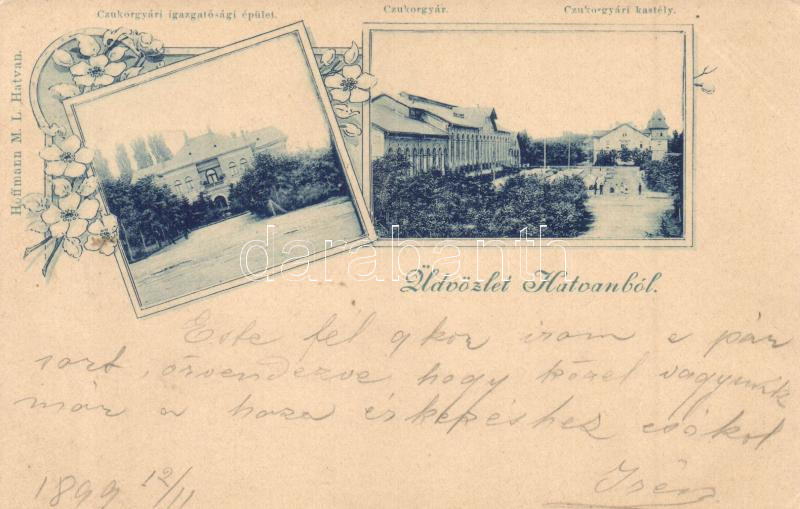 Czukorgyári igazgatósági épület.
Czukorgyár.
Czukorgyári kastély.
Hoffmann M. L. Hatvan.
darabanth
Üdvözlet Hatvanból.
Este fél 9 kor irom e pár
sort, örvendezve hogy közel vagyunk
már a haza érkezéshez csókol
Irén
1899 12/11